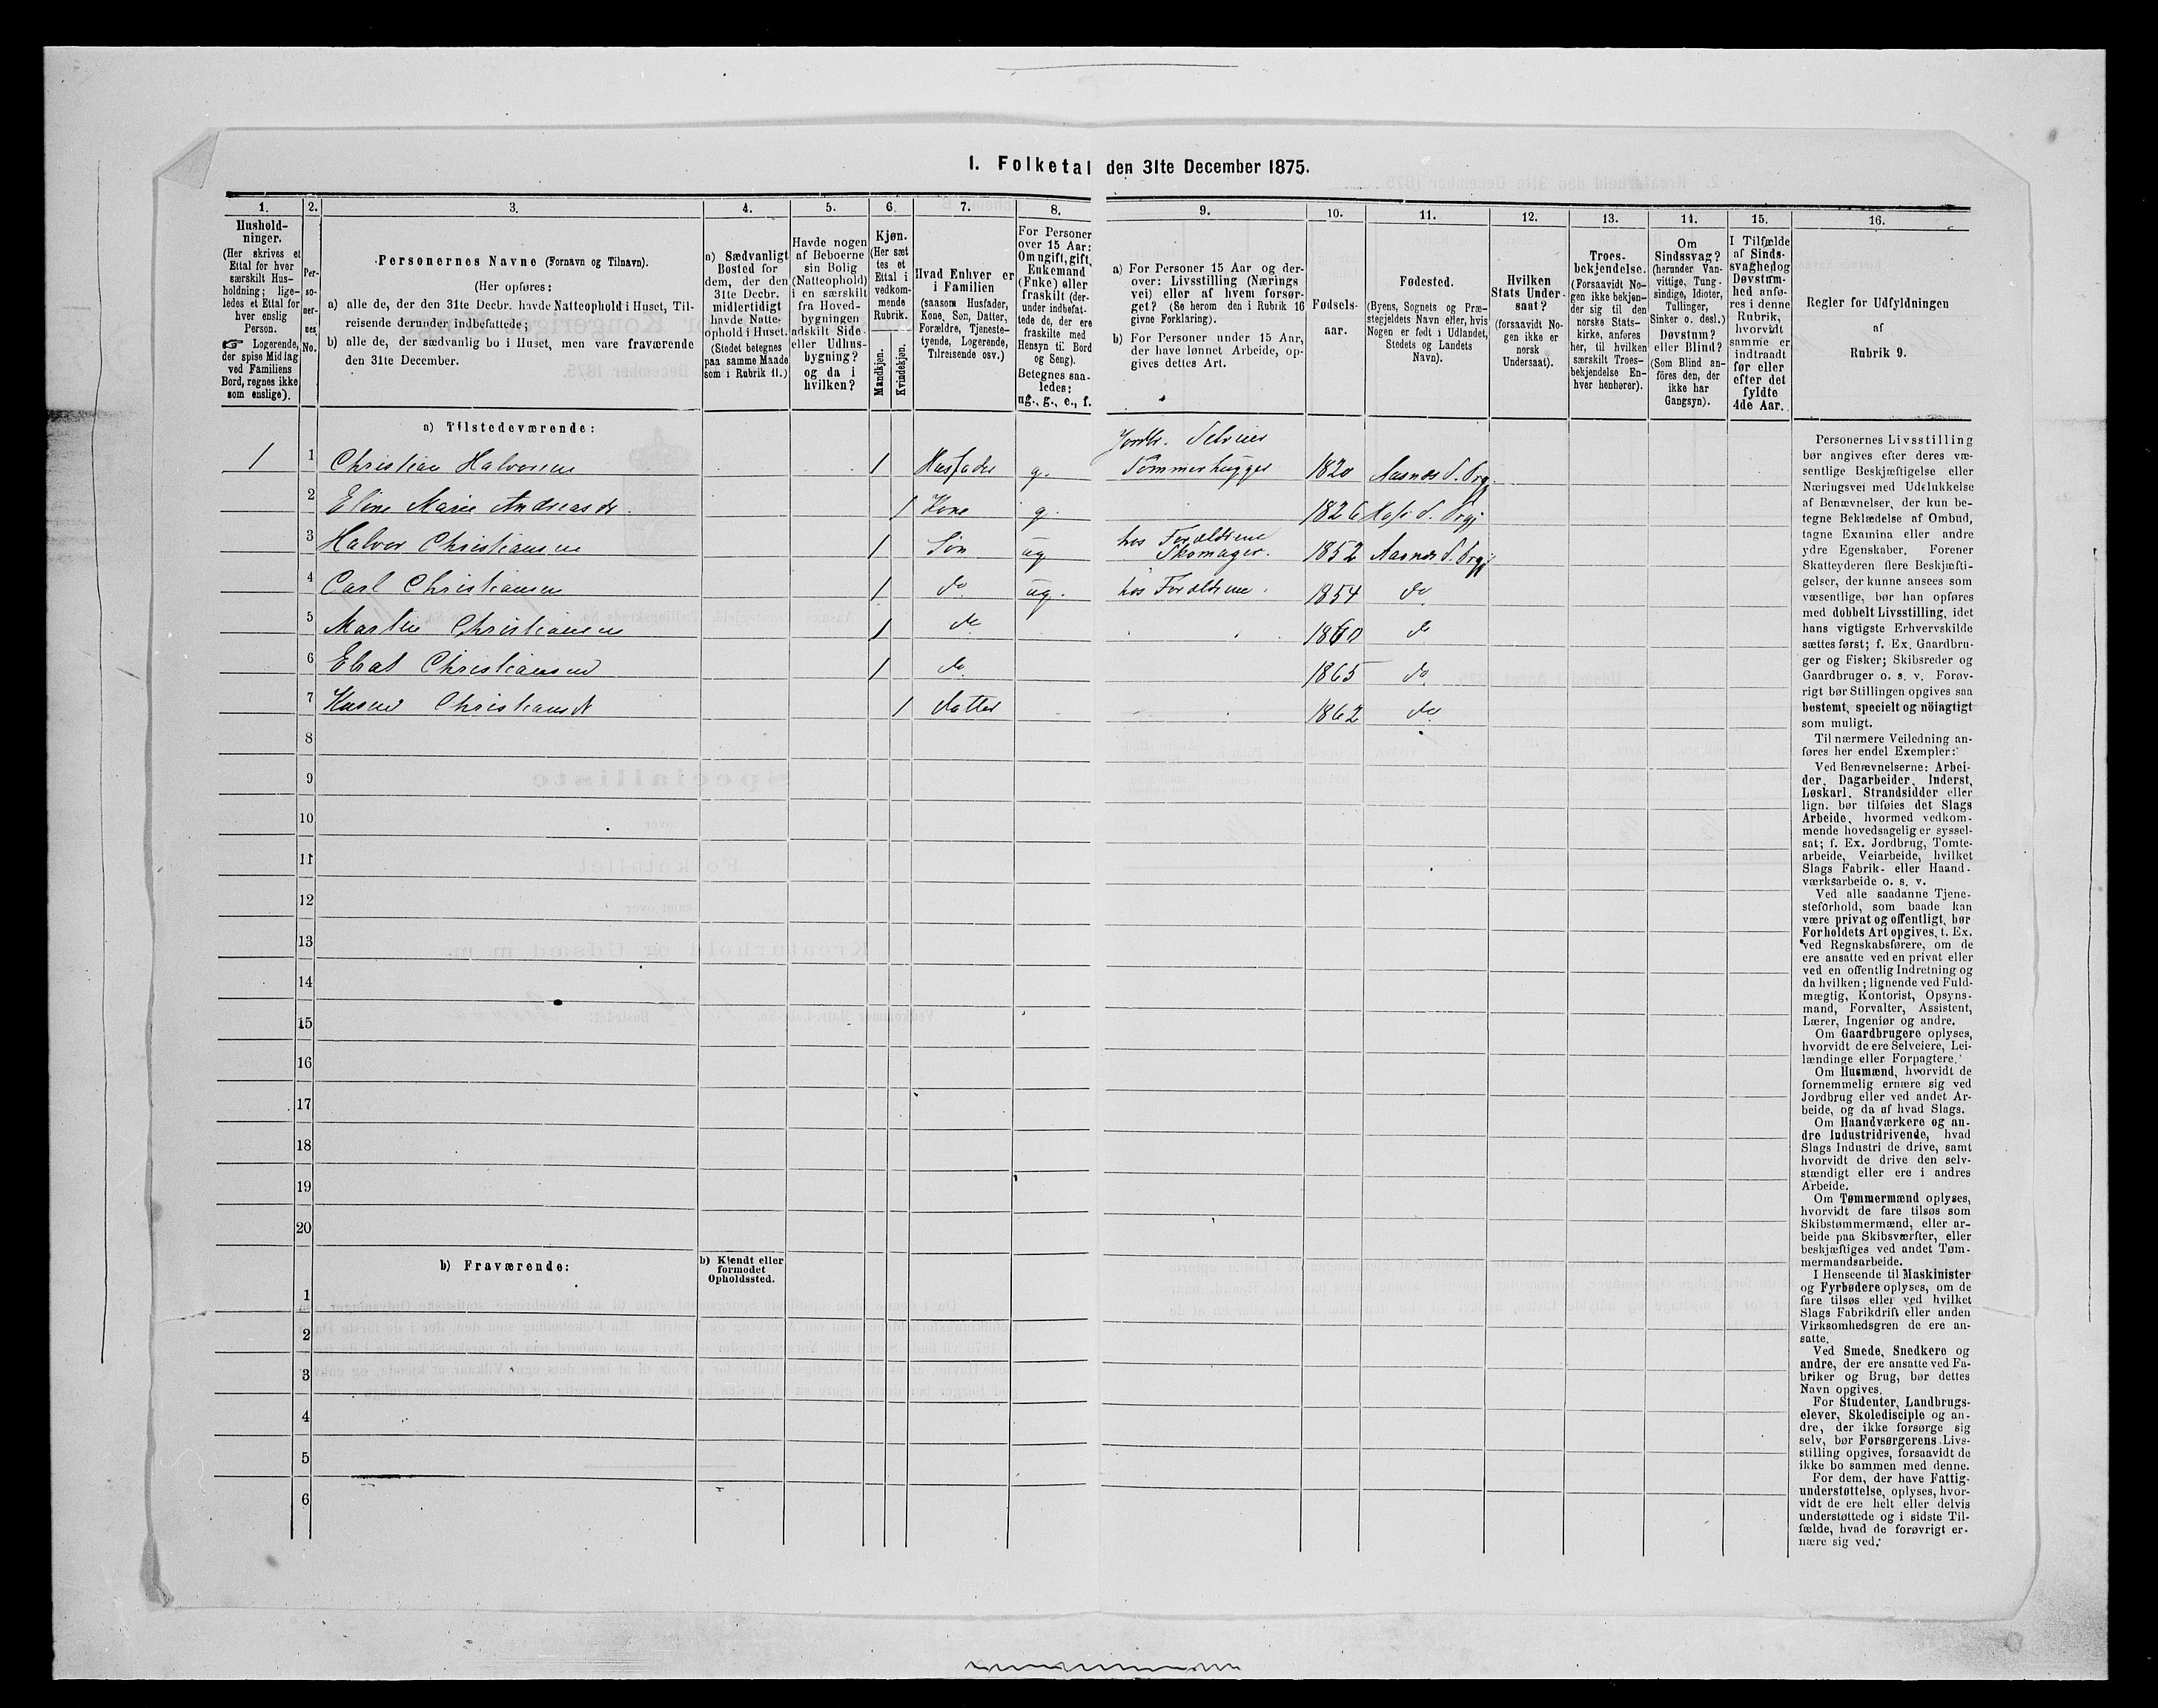 1. Folketal den 31te December 1875.
1.
Hushold-
ninger.
(Her skrives et
Ettal for hver
særskilt Hus-
holdning; lige-
ledes et Ettal for
hver enslig
Person.
☞ Logerende,
der spise Middag
ved Familiens
Bord, regnes ikke
som enslige).
2.
Per-
so-
ner-
nes
No.
3.
Personernes Navne (Fornavn og Tilnavn).
(Her opføres:
a) alle de, der den 31te Decbr. havde Natteophold i Huset, Til-
reisende derunder indbefattede;
b) alle de, der sædvanlig bo i Huset, men vare fraværende
den 31te December.
4.
a) Sædvanligt
Bosted for
dem, der den
31te Decbr.
midlertidigt
havde Natte-
ophold i Huset.
(Stedet betegnes
paa samme Maade
som i Rubrik 11.)
5.
Havde nogen
af Beboerne
sin Bolig
(Natteophold)
i en særskilt
fra Hoved-
bygningen
adskilt Side-
eller Udhus-
bygning?
og da i
hvilken?
6.
Kjøn.
(Her sæt
tes et
Ettal i
vedkom-
mende
Rubrik.
Mandkjøn.
Kvindekjøn.
7.
Hvad Enhver er
i Familien
(saasom Husfader,
Kone, Søn, Datter,
Forældre, Tjeneste-
tyende, Logerende,
Tilreisende osv.)
8.
For Personer
over 15 Aar:
Om ugift, gift,
Enkemand
(Enke) eller
fraskilt (der-
under indbefat-
tede de, der ere
fraskilte med
Hensyn til Bord
og Seng).
Betegnes saa-
ledes:
ug., g., e., f.
9.
a) For Personer 15 Aar og der-
over: Livsstilling (Nærings
vei) eller af hvem forsør-
get? (Se herom den i Rubrik 16
givne Forklaring).
b) For Personer under 15 Aar,
der have lønnet Arbeide, op-
gives dettes Art.
10.
Fødsels-
aar.
11.
Fødested.
(Byens, Sognets og Præ-
stegjeldets Navn eller, hvis
Nogen er født i Udlandet,
Stedets og Landets
Navn).
12.
Hvilken
Stats Under-
saat?
(forsaavidt No-
gen ikke er
norsk
Undersaat).
13.
Troes-
bekjendelse.
(Forsaavidt No-
gen ikke bekjen-
der sig til den
norske Stats-
kirke, anføres
her, til hvilken
særskilt Troes-
bekjendelse En-
hver henhører).
14.
Om
Sindssvag?
(herunder Van-
vittige, Tung-
sindige, Idioter,
Tullinger,
Sinker o. desl.)
Døvstum?
eller Blind?
(Som Blind an-
føres den, der
ikke har
Gangsyn).
15.
I Tilfælde
af Sinds-
svaghed og
Døvstum-
hed anfø-
res i denne
Rubrik,
hvorvidt
samme er
indtraadt
før eller
efter det
fyldte
4de Aar.
16.
Regler for Udfyldningen
af
Rubrik 9.
a) Tilstedeværende:
Jordbr. Selveier
1 1 Christian Halvorsen 1 Husfader g. Tømmerhugger 1820 Aasnæs S. Prgj.
2 Eline Marie Andreasdr. 1 Kone g. 1826 Hof S. Prgj
hos Forældrene
3 Halvor Christiansen 1 Søn ug Skomager. 1852 Aasnæs S. Prgj
4 Carl Christiansen 1 do ug. hos Forældrene. 1854 do
5 Martin Christiansen 1 do 1860 do
6 Christiansen 1 do. 1865 do.
7 Christiansdt 1 datter 1862 do.
8
9
10
11
12
13
14
15
16
17
18
19
20
b) Fraværende:
b) Kjendt eller
formodet
Opholdssted.
1
2
3
4
5
6
Personernes Livsstilling
bør angives efter deres væ-
sentlige Beskjæftigelse eller
Næringsvei med Udelukkelse
af Benævnelser, der kun be-
tegne Beklædelse af Ombud,
tagne Examina eller andre
ydre Egenskaber. Forener
Skatteyderen flere Beskjæfti-
gelser, der kunne ansees som
væsentlige, bør han opføres
med dobbelt Livsstilling, idet
hans vigtigste Erhvervskilde
sættes først; f. Ex. Gaardbru-
ger og Fisker; Skibsreder og
Gaardbruger o. s. v. Forøv-
rigt bør Stillingen opgives saa
bestemt, specielt og nøiagtigt
som muligt.
Til nærmere Veiledning an-
føres her endel Exempler:
Ved Benævnelserne: Arbei-
der, Dagarbeider, Inderst,
Løskarl, Strandsidder eller
lign. bør tilføies det Slags
Arbeide, hvormed vedkom-
mende hovedsagelig er syssel-
sat; f. Ex. Jordbrug, Tomte-
arbeide, Veiarbeide, hvilket
Slags Fabrik- eller Haand-
værksarbeide o. s. v.
Ved alle saadanne Tjene-
steforhold, som baade kan
være privat og offentligt, bør
Forholdets Art opgives, t. Ex.
ved Regnskabsførere, om de
ere ansatte ved en privat eller
ved en offentlig Indretning og
da hvilken; lignende ved Fuld-
mægtig, Kontorist, Opsyns-
mand, Forvalter, Assistent,
Lærer, Ingeniør og andre.
Om Gaardbrugere oplyses,
hvorvidt de ere Selveiere, Lei-
lændinge eller Forpagtere.
Om Husmænd, hvorvidt de
fornemmelig ernære sig ved
Jordbrug eller ved andet Ar-
beide, og da af hvad Slags.
Om Haandværkere og an-
dre Industridrivende, hvad
Slags Industri de drive, samt
hvorvidt de drive den selv-
stændigt eller ere i andres
Arbeide.
Om Tømmermænd oplyses,
hvorvidt de fare tilsøs som
Skibstømmermænd, eller ar-
beide paa Skibsværfter, eller
beskjæftiges ved andet Tøm-
mermandsarbeide.
I Henseende til Maskinister
og Fyrbødere oplyses, om de
fare tilsøs eller ved hvilket
Slags Fabrikdrift eller anden
Virksomhedsgren de ere an-
satte.
Ved Smede, Snedkere og
andre, der ere ansatte ved Fa-
briker og Brug, bør dettes
Navn opgives.
For Studenter, Landbrugs-
elever, Skoledisciple og an-
dre, der ikke forsørge sig
selv, bør Forsørgerens Livs-
stilling opgives, forsaavidt de
ikke bo sammen med denne.
For dem, der have Fattig-
understøttelse, oplyses, hvor-
vidt de ere helt eller delvis
understøttede og i sidste Til-
fælde, hvad de forøvrigt er-
nære sig ved.